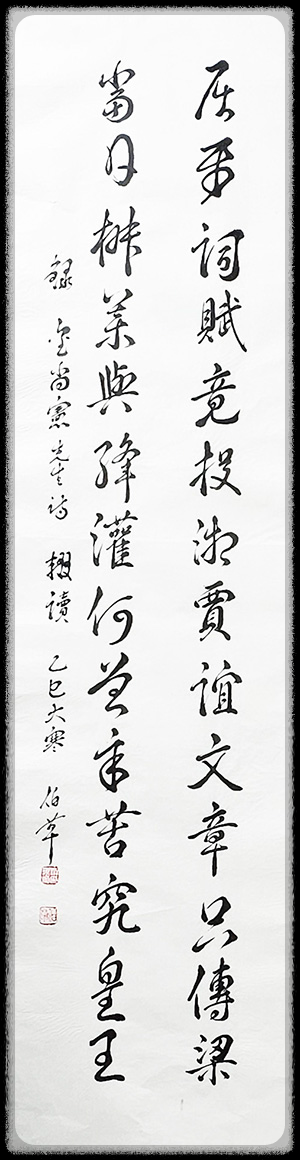 屈平詞賦竟投湘賈誼文章只傳梁
當日椒蘭與絳灌何曾辛苦究皇王
錄金尚憲先生詩 輟讀 乙巳大寒 伯